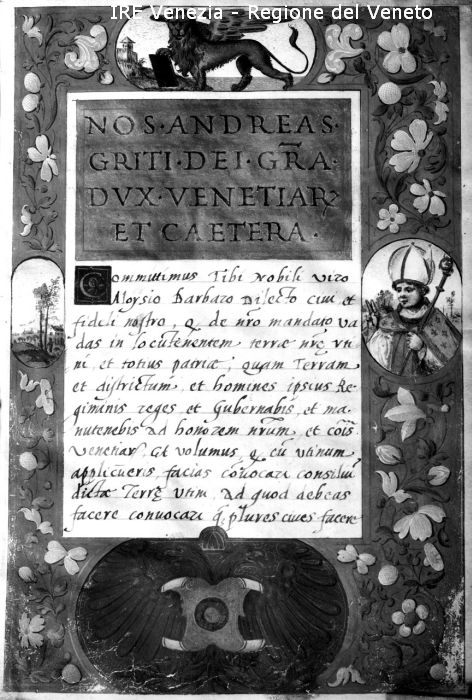 IRE Venezia - Regione del Veneto
NOS·ANDREAS·
GRITI·DEI·GR̃A·
DVX·VENETIAR̃
ET CAETERA·
Committimus Tibi Nobili viro
Aloysio Barbaro Dilecto ciui et
fideli nostro, q̃ de nr̃o mandato va
das in locutenentem terræ nr̃ę vti
ni et totius patriæ, quam Terram
et districtum et homines ipsius Re
giminis reges et Gubernabis, et ma
nutenebis ad honorem nr̃um et cõis
Venetiar̃. Et volumus, q̃ cũ vtinum
applicueris, facias cõuocari consiliũ
dictæ Terrę vtini Ad quod debeas
facere conuocari q̃ plures ciues facere